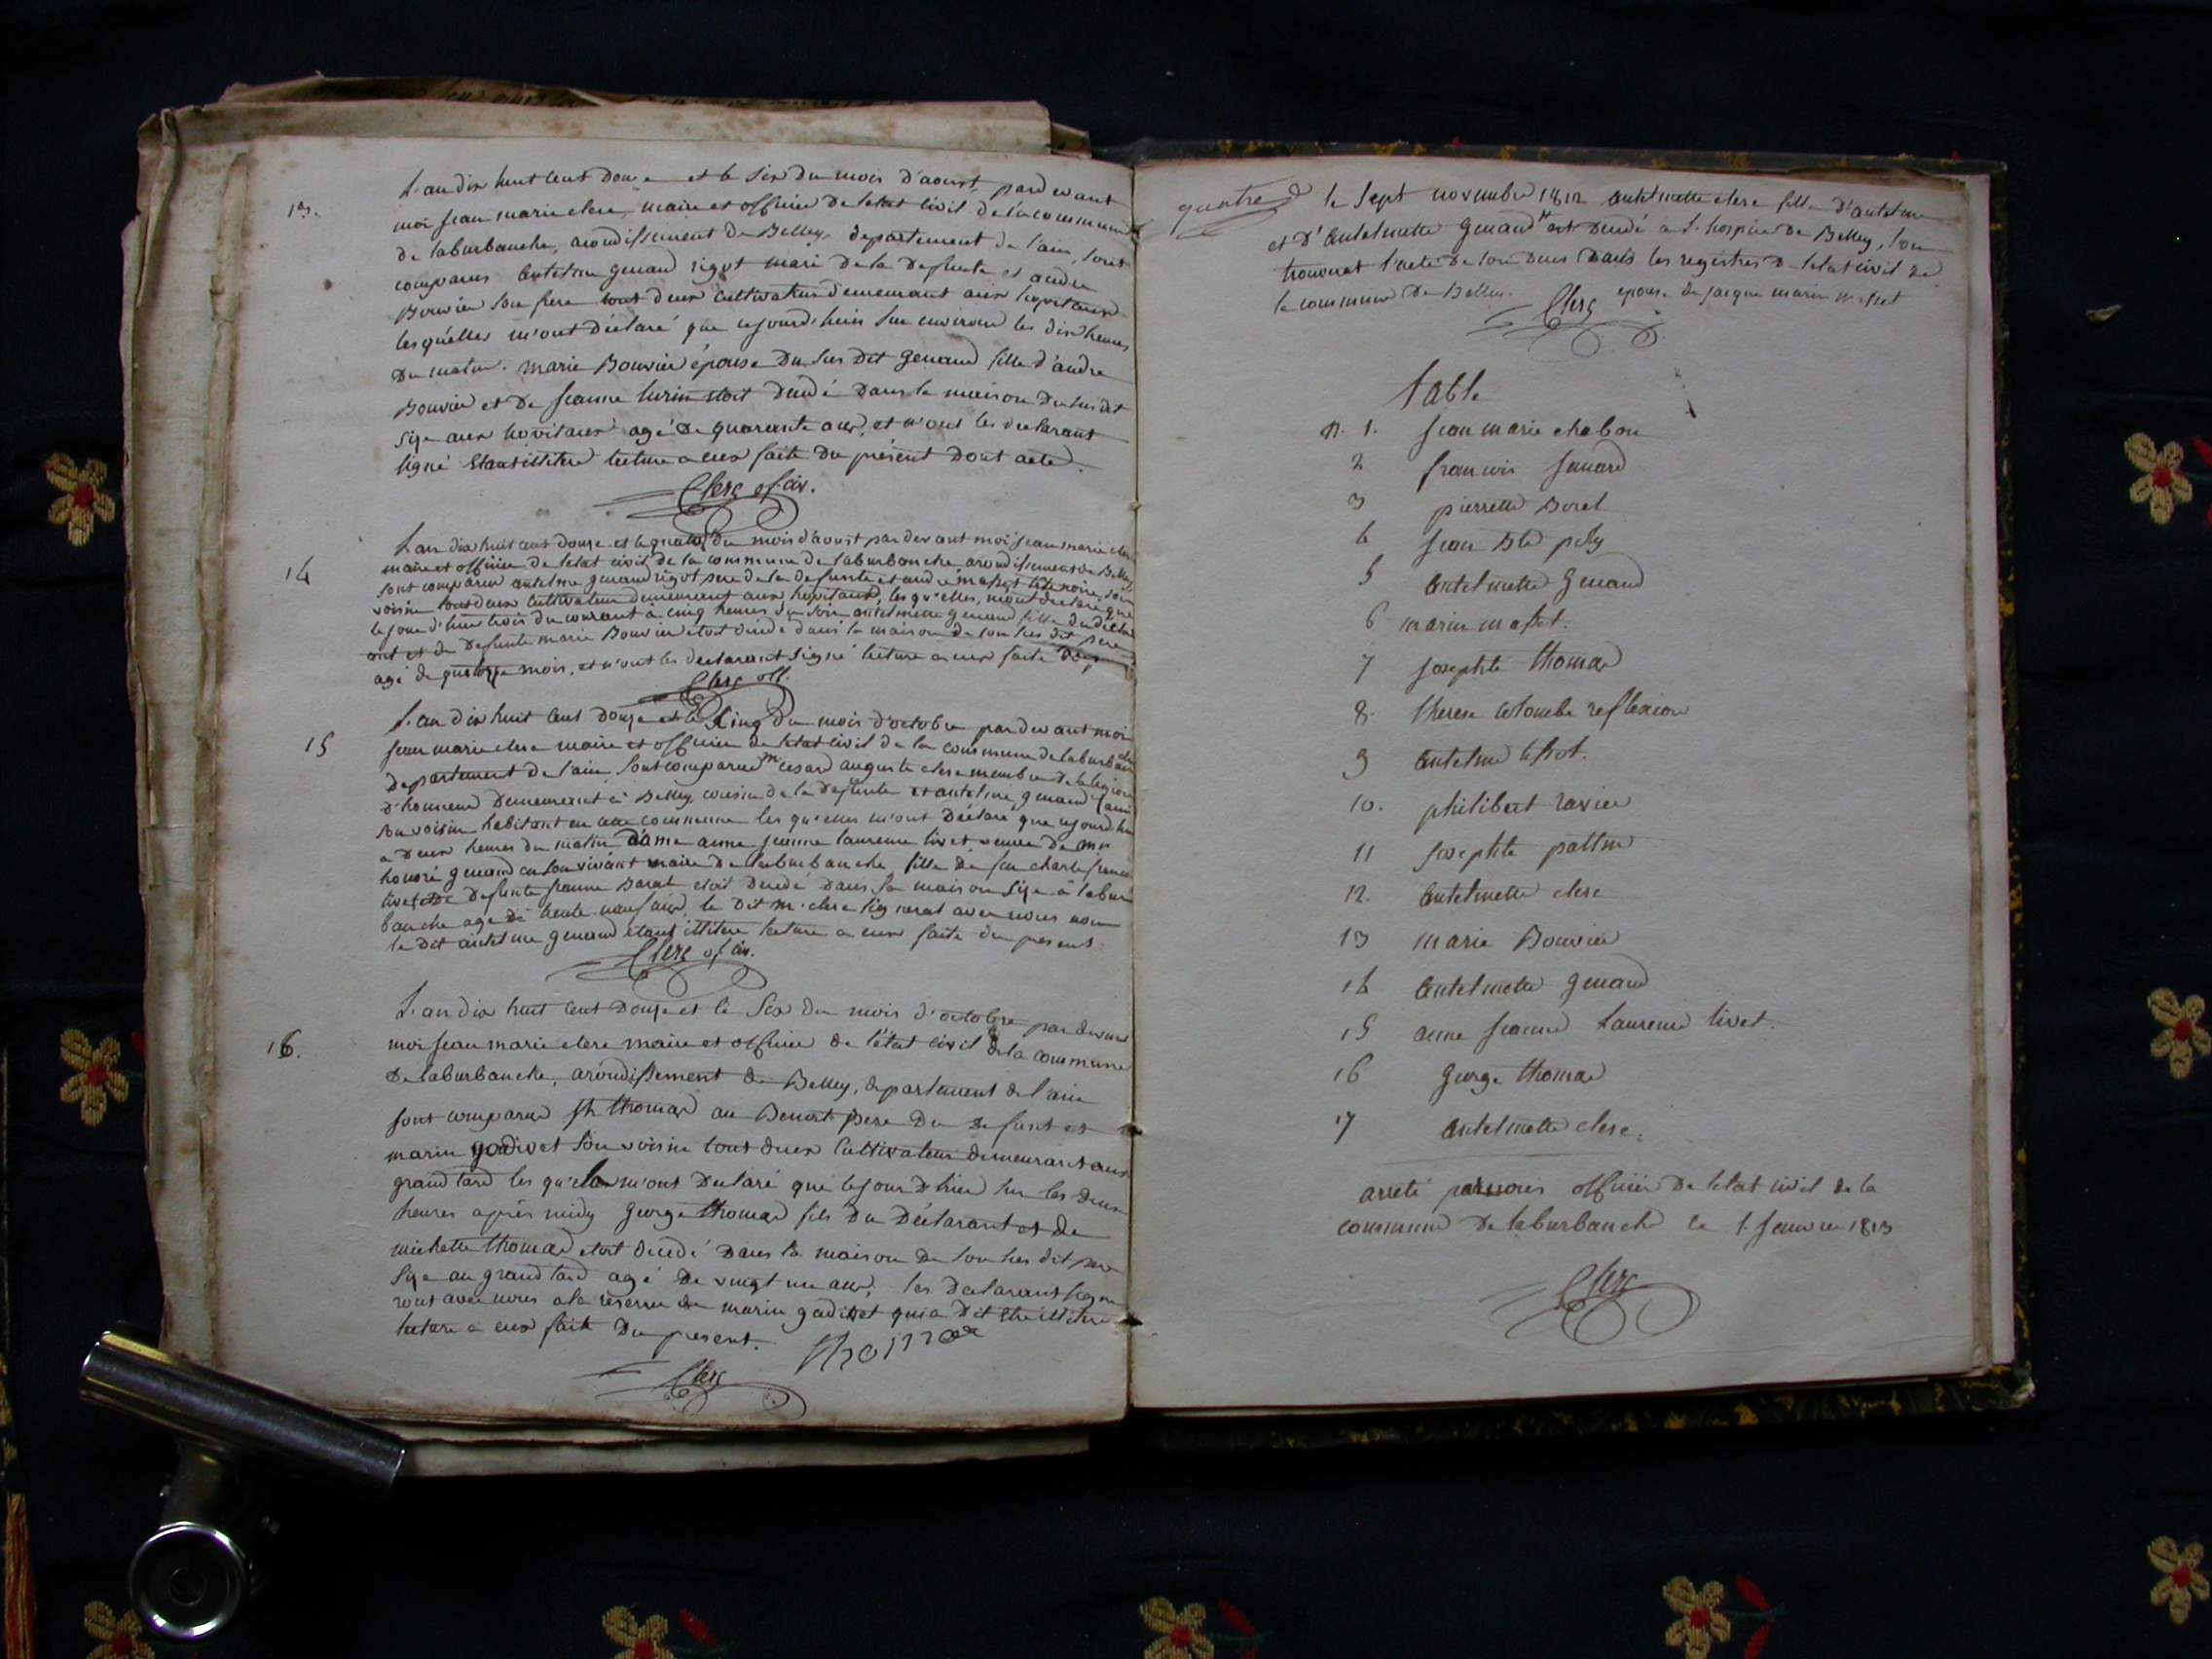 13.
L'an dix huit cent douze et le six du mois d'aoust, pardevant
moi jean marie clerc, maire et officier de letat civil de la commune
de laburbanche, arondissement de Belley, departement de l'ain, sont
comparus antelme genaud rigot mari de la defunte et andre
Bouvier son frere tout deux cultivateur demeurant aux hopitaux
lesquelles m'ont déclaré que cejourd'huis sur environ les dix heures
du matin. marie Bouvier épouse du sus dit genaud fille d'andre
Bouvier et de jeanne étoit décédé dans la maison du sus dit
size aux hopitaux agé de quarante ans, et n'ont les declarant
signé étant illitéré lecture a eux faite du présent dont acte.
Clerc of. civ.
14
L'an dix huit cent douze et le quatorze du mois d'aoust par devant moi jean marie clerc
maire et officier de letat civil de la commune de laburbanche arondissement de Belley
sont comparus antelme genaud rigot pere de la defunte et andré masset tete noire, son
voisin tout deux cultivateur demeurant aux hopitaux, les qu'elles, m'ont declaré que
le jour d'hier trois du courant à cinq heures du soir antelmette genaud fille du déclar
ant et de defunte marie Bouvier étoit décédé dans la maison de son sus dit pere
agé de quatorze mois, et n'ont les declarant signé lecture a eux faite
Clerc off.
15
L'an dix huit cent douze et le cinq du mois d'octobre pardevant moi
jean marie clerc maire et officier de letat civil de la commune de laburbanche
departement de l'ain sont comparus mr cesard auguste clerc membre de la legion
d'honneur demeurant à Belley cousin de la defunte et antelme genaud
son voisin habitant en cette commune les qu'elles m'ont déclaré que cejourd'hui
a deux heures du matin dame anne jeanne laurence livet veuve de mr
honoré genaud en son vivant maire de laburbanche fille de feu charle
livet et de defunte jeanne Baral étoit décédé dans sa maison size à labur
banche agé de trente neuf ans, le dit mr. clerc signerat avec nous non
le dit antelme genaud étant illitéré lecture a eux faite du present.
Clerc of. civ.
16.
L'an dix huit cent douze et le six du mois d'octobre par devant
moi jean marie clerc maire et officier de l'état civil de la commune
de laburbanche, arondissement de Belley, departement de l'ain
sont comparus jh thomas au Benoit pere du defunt et
marin godivet son voisin tout deux cultivateur demeurant aux
grand tard les qu'elles m'ont declaré que le jour d'hier sur les deux
heures après midy george thomas fils du Déclarant et de
michette thomas étoit décédé dans la maison de son sus dit pere
size au grand tard agé de vingt un ans, les declarant signe
ront avec nous a la reserve de marin godivet qui a dit etre illitéré
lecture a eux faite du present. Thomas
Clerc
le sept novembre 1812 antelmette clerc fille d'antelme
et d'antelmette genaud est decédé à l'hospice de Belley, l'on
trouverat l'acte de son deces dans les registres de letat civil de
la commune de Belley. epouse de jacque marin masset
Clerc
table
n. 1. jean marie chabou
2 francois junard
3 pierrette Borel
4 jean Bte poly
5 antelmette genaud
6 marin masset.
7 josephte thomas
8. therese colombe reflexion
9 antelme
10. philibert ravier
11 josephte
12. antelmette clerc
13 marie Bouvier
14 antelmette genaud
15 anne jeanne laurence livet.
16 george thomas
17 antelmette clerc.
arreté par nous officier de letat civil de la
commune de laburbanche le 1. janvier 1813
Clerc